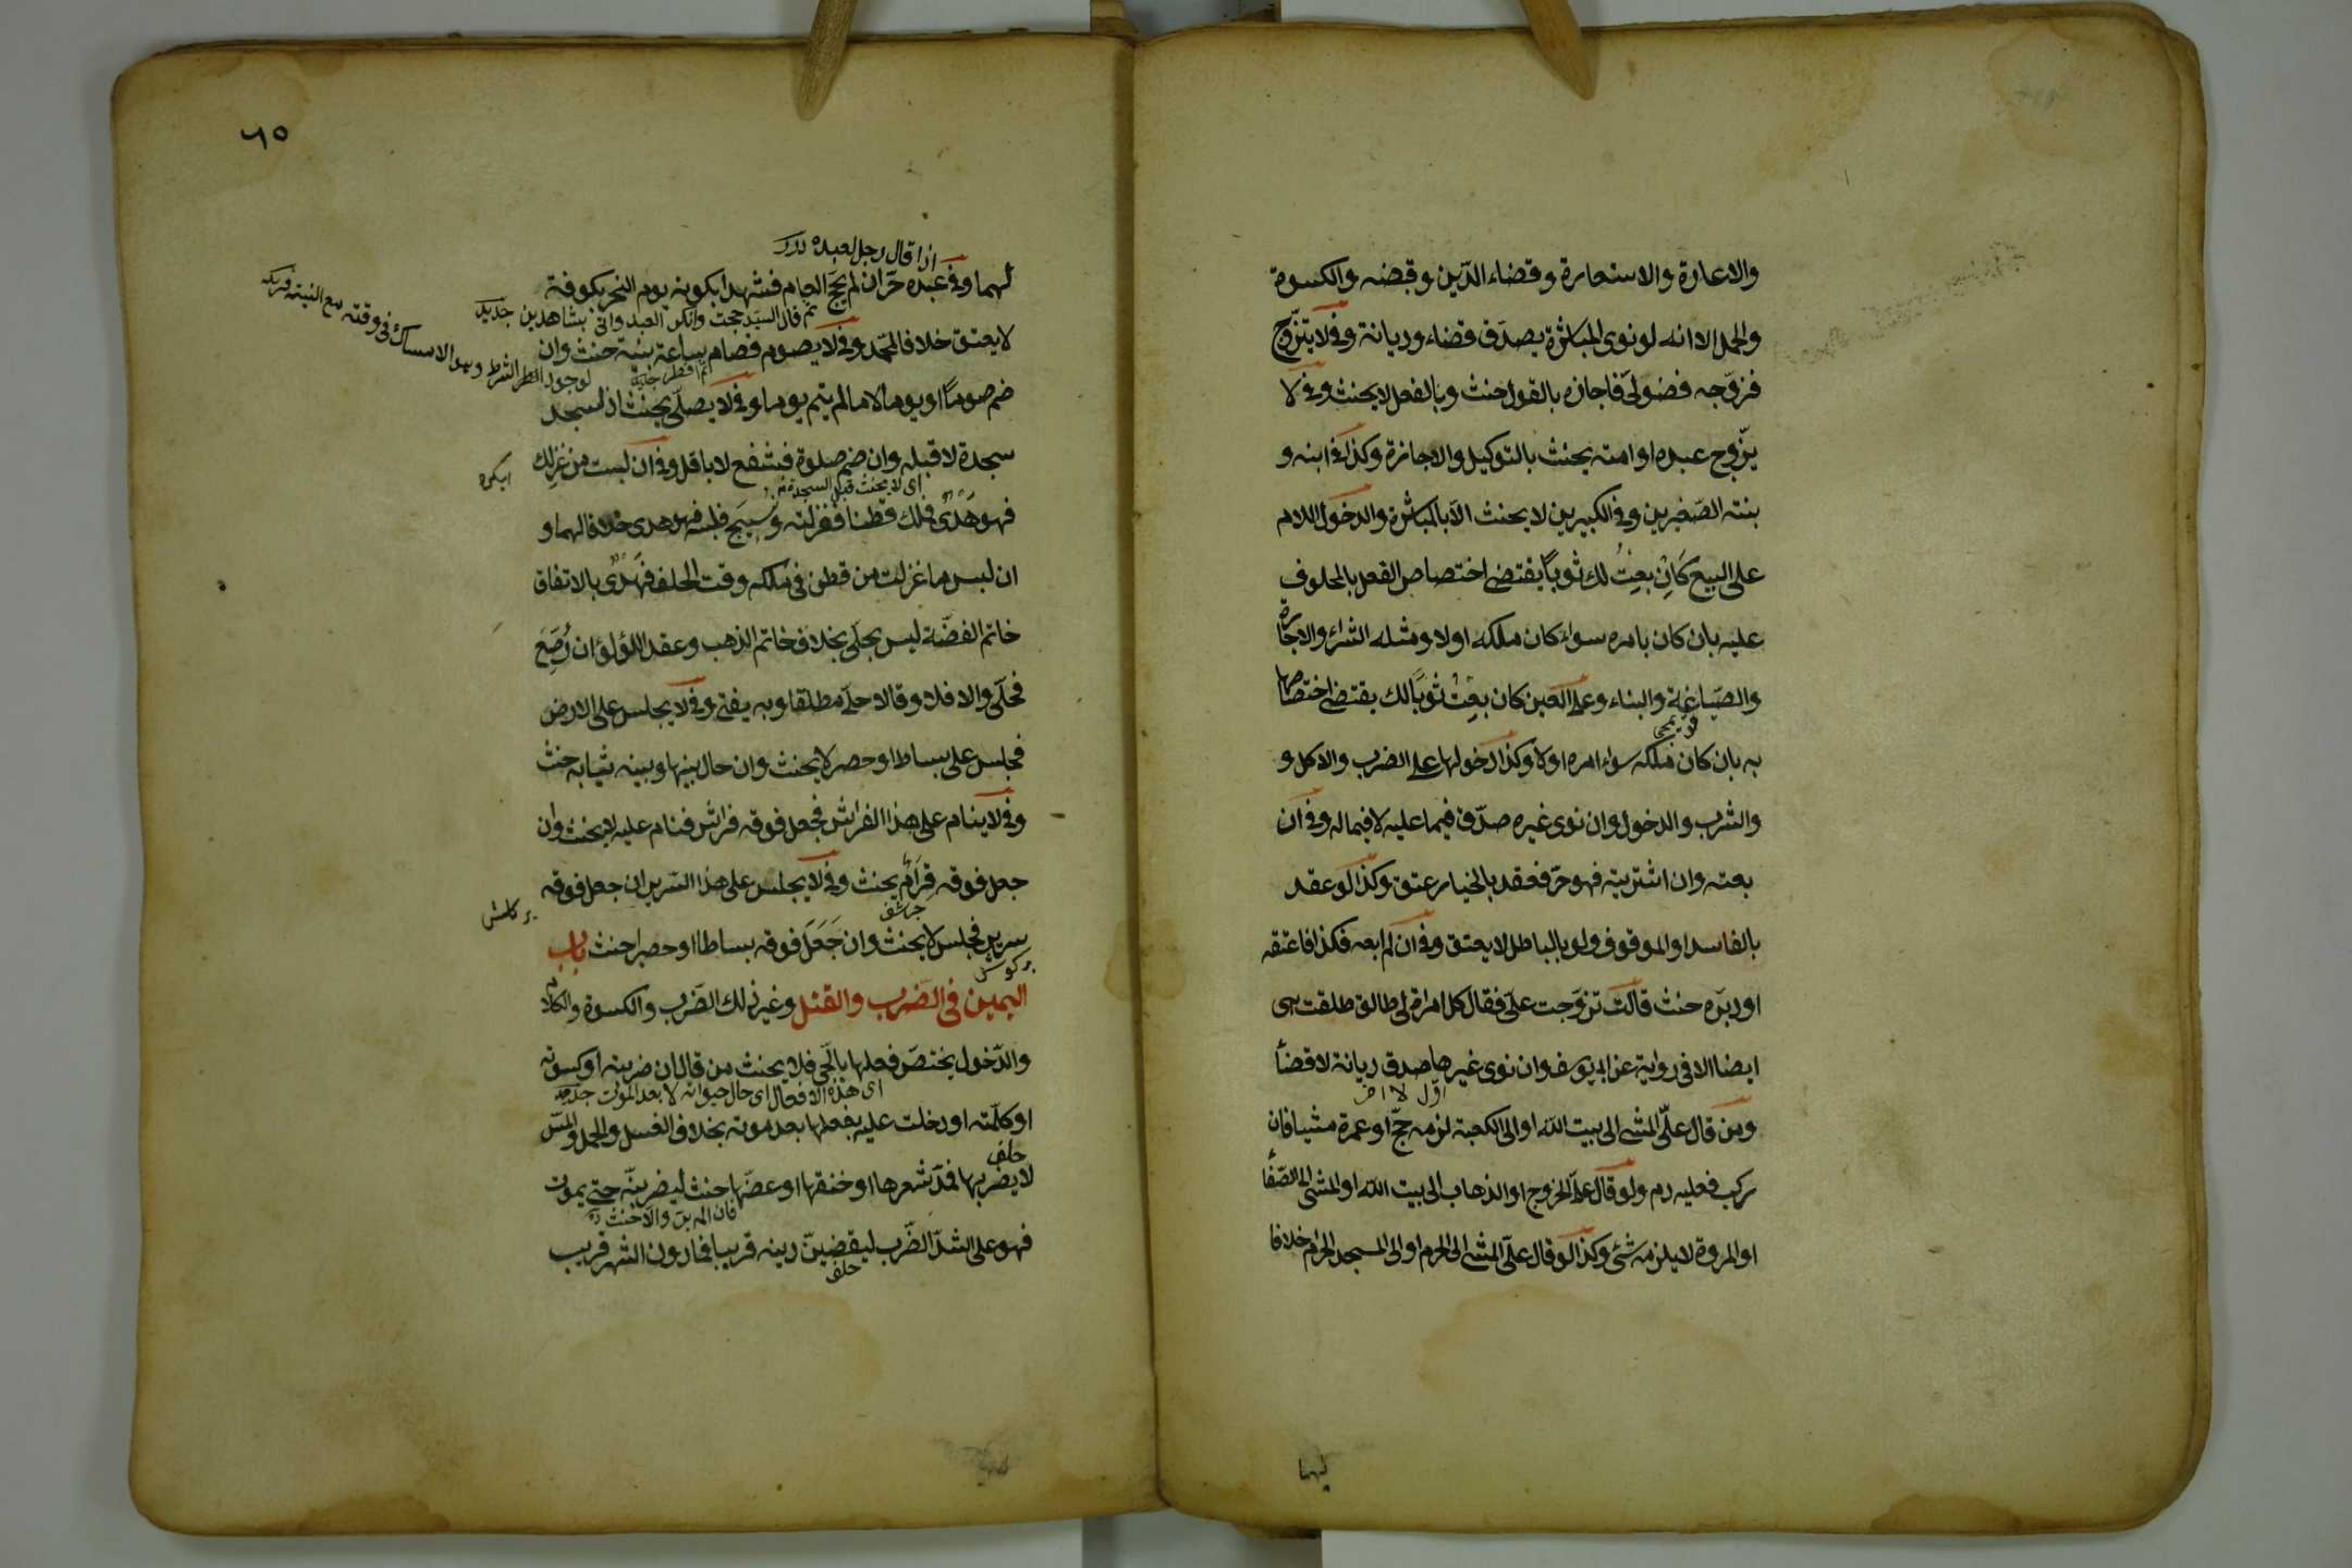 والاعارة والاستعارة وقضاء الدّين وقبضه والكسوة
والحمل الا انه لو نوى المباشرة يصدّق قضاء وديانة وفى لا يتزوّج
فزوّجه فضولىّ فاجازه بالقول حنث وبالفعل لا يحنث وفى لا
يزوّج عبده او امته يحنث بالتوكيل والاجازة وكذا فى ابنه و
بنته الصّغيرين وفى الكبيرين لا يحنث الاّ بالمباشرة والدخول اللام
على البيع كَاِنْ بعتُ لك ثوباً يقتضى اختصاص الفعل بالمحلوف
عليه بان كان بامره سواء كان ملكه او لا ومثله الشراء والاجارة
والصّياغة والبناء وعلى العين كان بعتُ ثوبًا لك يقتضى اختصاصها
به بان كان ملكه سواء امره او لا وكذا دخولها على الضرب والاكل و
والشرب والدخول وان نوى غيره صدّق فيما عليه لا فيما له وفى ان
بعته وان اشتريته فهو حرّ فعقد بالخيار عتق وكذا لو عقد
بالفاسد او الموقوف ولو بالباطل لا يعتق وفى ان لم ابعه فكذا فاعتقه
او دبّره حنث قالت تزوّجت علىّ فقال كل امراة لى طالق طلقت هى
ايضا الا فى رواية عن ابى يوسف وان نوى غيرها صدق ديانة لا قضاءً
اول لا اصح
ومن قال علىّ المشى الى بيت الله او الى الكعبة لزمه حجّ او عمرة مشيا فان
ركب فعليه دم ولو قال علىّ الخروج او الذهاب الى بيت الله او المشى الى الصّفا
او المروة لا يلزمه شئ وكذا لو قال علىّ المشى الى الحرم او الى المسجد الحرام خلافا
لهما
٦٥
اذا قال رجل لعبده درر
لهما وفى عبده حرّ ان لم يحجّ العام فشهدا بكونه يوم النحر بكوفة
ثم قال السيد حججت وانكر العبد واتى بشاهدين جديد
لا يعتق خلافا لمحمّد وفى لا يصوم فصام ساعة بنيّة حنث وان
ثم افطر
لوجود الشرط وهو الامساك فى وقته مع النية
ضم صوماً او يوما لا ما لم يتم يوما وفى لا يصلّى يحنث اذا سجد
سجدة لا قبله وان ضم صلوة فبشفع لا باقل وفى ان لبست من غزلك
اى لا يحنث قبل السجدة
فهو هَدْىٌ فملك قطنا فغزلته ونسج فلبسه فهو هدى خلافا لهما و
ان لبس ما غزلت من قطن فى ملكه وقت الحلف فهدىٌ بالاتفاق
خاتم الفضّة ليس بحلىّ بخلاف خاتم الذهب وعقد اللؤلؤ ان رُصّع
فحلىّ والا فلا وقالا حلىّ مطلقا وبه يفتى وفى لا يجلس على الارض
فجلس على بساط او حصر لا يحنث وان حال بينها وبينه ثيابه حنث
وفى لا ينام على هذا الفراش فجعل فوقه فراش فنام عليه لا يحنث وان
جعل فوقه قِرَام يحنث وفى لا يجلس على هذا السّرير ان جعل فوقه
سرير فجلس لا يحنث وان جَعَلَ فوقه بساطا او حصيرا حنث باب
اليمين فى الضّرب والقتل وغير ذلك الضّرب والكسوة والكلام
والدّخول يختصّ فعلها بالحىّ فلا يحنث من قال ان ضربته او كسوته
اى هذه الافعال اى حال حيوانه لا بعد الموت
او كلّمته او دخلت عليه بفعلها بعد موته بخلاف الغسل والحمل والمسّ
حلف
لا يضربها فمدّ شعرها او خنقها او عضّها حنث ليضربنّه حتى يموت
فهو على اشدّ الضّرب ليقضينّ دينه قريبا فما دون الشهر قريب
حلف